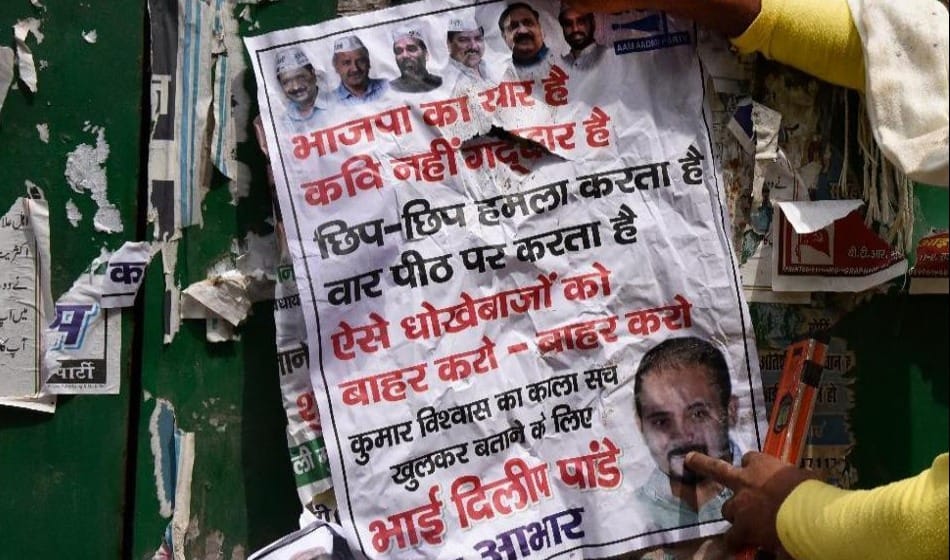 AAM AADMI PARTY
भाजपा का यार है
कवि नहीं गद्दार है
छिप-छिप हमला करता है
वार पीठ पर करता है
ऐसे धोखेबाजों को
बाहर करो - बाहर करो
कुमार विश्वास का काला सच
खुलकर बताने के लिए
भाई दिलीप पांडे
आभार
क
म
पार्टी